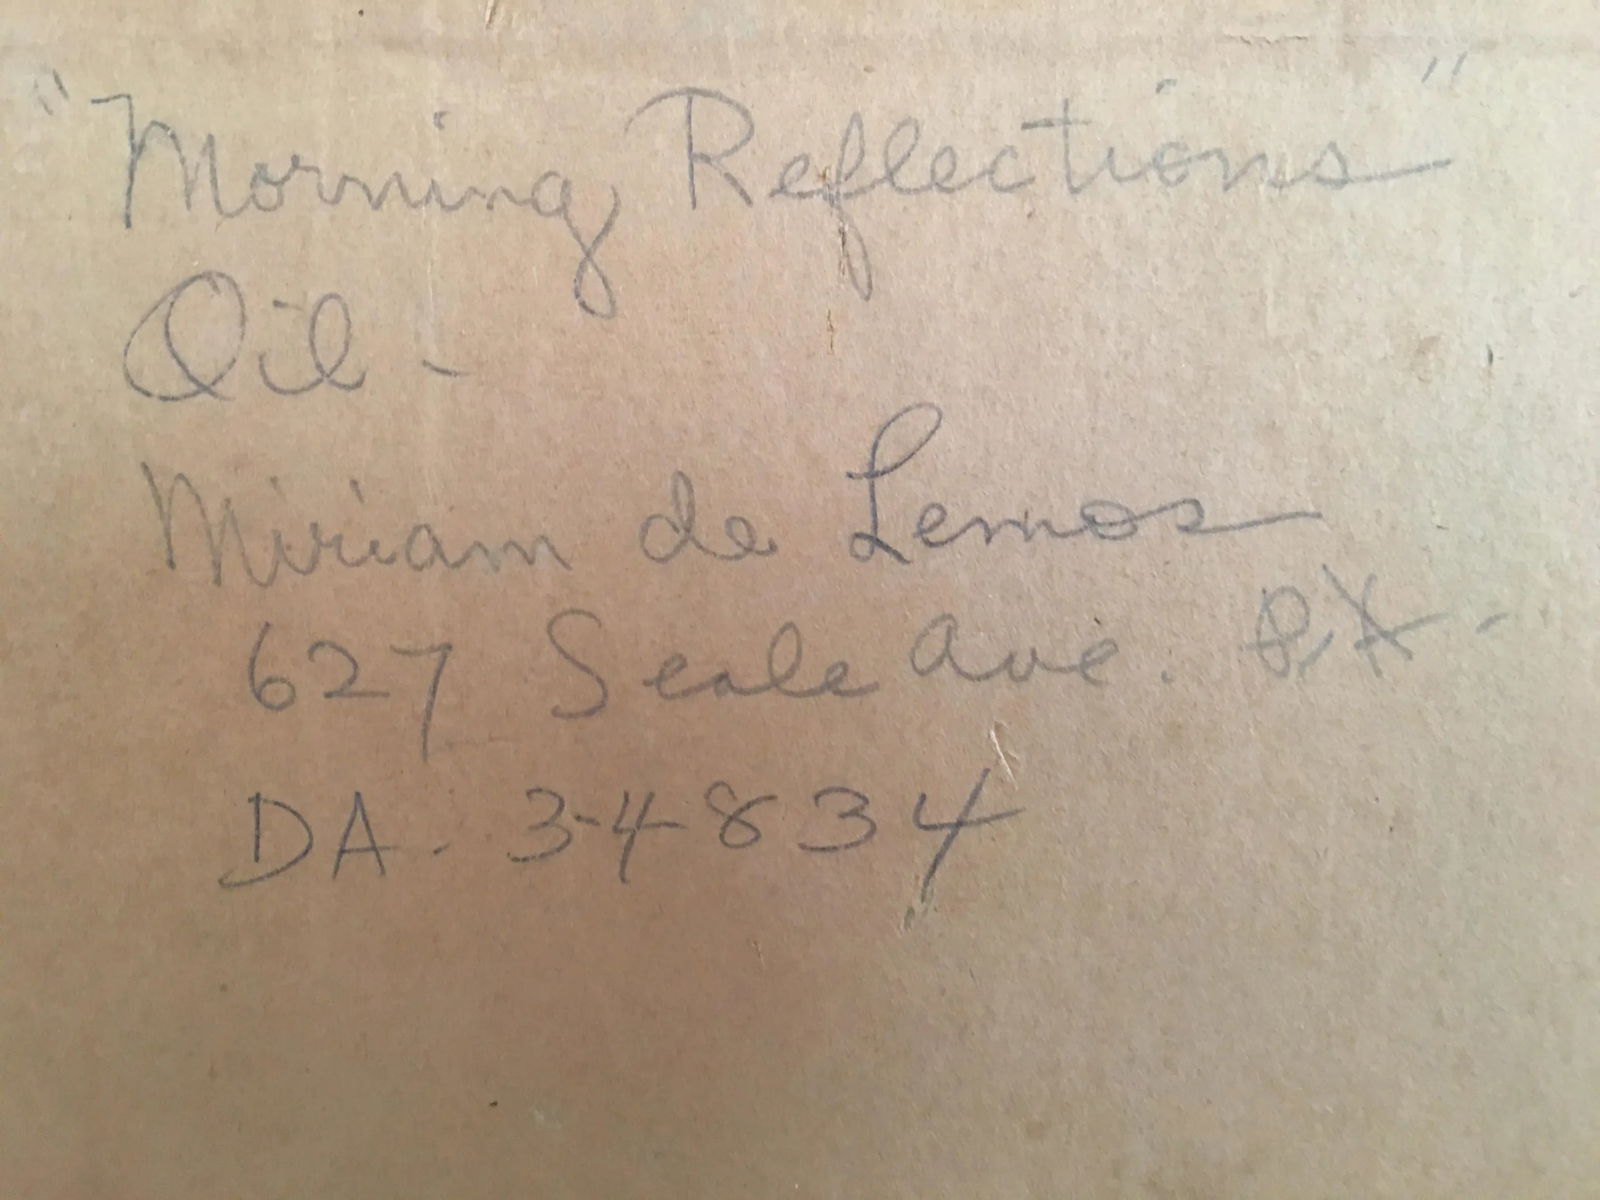 "Morning Reflections"
Oil -
Miriam de Lemos
627 Seale Ave. P.A. -
DA. 3-4834